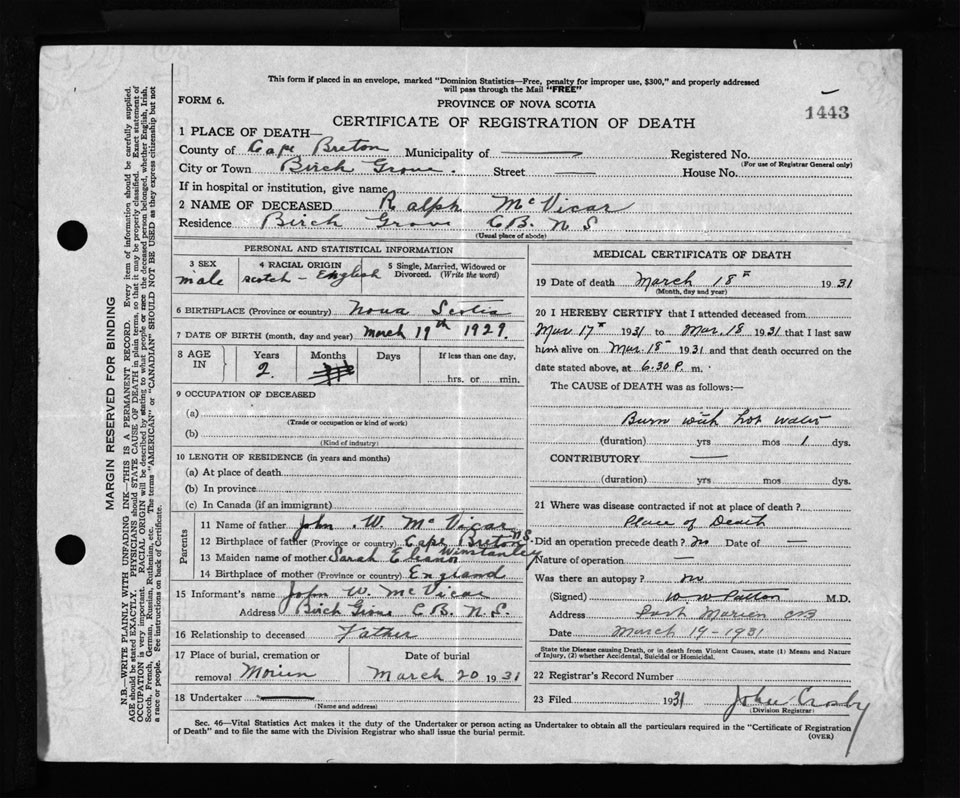 This form if placed in an envelope, marked "Dominion Statistics—Free, penalty for improper use, $300," and properly addressed
will pass through the Mail "FREE"
FORM 6.
PROVINCE OF NOVA SCOTIA
1443
CERTIFICATE OF REGISTRATION OF DEATH
1 PLACE OF DEATH—
County of Cape Breton Municipality of — Registered No.
(For use of Registrar General only)
City or Town Birch Grove. Street — House No.
If in hospital or institution, give name
2 NAME OF DECEASED Ralph McVicar
Residence Birch Grove C.B. N.S
(Usual place of abode)
PERSONAL AND STATISTICAL INFORMATION
3 SEX
male
4 RACIAL ORIGIN
scotch - English
5 Single, Married, Widowed or
Divorced. (Write the word)
6 BIRTHPLACE (Province or country) Nova Scotia
7 DATE OF BIRTH (month, day and year) March 19th 1929.
8 AGE
IN
Years
2.
Months
Days
If less than one day,
hrs. or min.
9 OCCUPATION OF DECEASED
(a)
(Trade or occupation or kind of work)
(b)
(Kind of industry)
10 LENGTH OF RESIDENCE (in years and months)
(a) At place of death
(b) In province
(c) In Canada (if an immigrant)
Parents
11 Name of father John W. McVicar
12 Birthplace of father (Province or country) Cape Breton N.S.
13 Maiden name of mother Sarah Eleanor Winstanley
14 Birthplace of mother (Province or country) England
15 Informant's name John W. McVicar
Address Birch Grove C.B. N.S.
16 Relationship to deceased Father
17 Place of burial, cremation or
removal Morien
Date of burial
March 20 1931
18 Undertaker
(Name and address)
MEDICAL CERTIFICATE OF DEATH
19 Date of death March 18th 1931
(Month, day and year)
20 I HEREBY CERTIFY that I attended deceased from
Mar 17th 1931 to Mar. 18 1931 that I last saw
him alive on Mar 18th 1931 and that death occurred on the
date stated above, at 6.30 P. m.
The CAUSE of DEATH was as follows:—
Burn with hot water
(duration) yrs mos 1 dys.
CONTRIBUTORY —
(duration) yrs mos dys.
21 Where was disease contracted if not at place of death?
Place of Death
Did an operation precede death? no Date of —
Nature of operation —
Was there an autopsy? no
(Signed) W W Patton M.D.
Address Port Morien CB
Date March 19-1931
State the Disease causing Death, or in death from Violent Causes, state (1) Means and Nature
of Injury, (2) whether Accidental, Suicidal or Homicidal.
22 Registrar's Record Number
23 Filed 1931 John Crosby
(Division Registrar)
Sec. 46—Vital Statistics Act makes it the duty of the Undertaker or person acting as Undertaker to obtain all the particulars required in the "Certificate of Registration
of Death" and to file the same with the Division Registrar who shall issue the burial permit.
(OVER)
MARGIN RESERVED FOR BINDING
N.B.—WRITE PLAINLY WITH UNFADING INK—THIS IS A PERMANENT RECORD. Every item of information should be carefully supplied.
AGE should be stated EXACTLY. PHYSICIANS should STATE CAUSE OF DEATH in plain terms, so that it may be properly classified. Exact statement of
OCCUPATION is very important. RACIAL ORIGIN will be described by stating to what people or race the deceased person belonged, whether English, Irish,
Scotch, French, German, Russian, Ruthenian, etc. The terms "AMERICAN" or "CANADIAN" SHOULD NOT BE USED as they express citizenship but not
a race or people. See instructions on back of Certificate.